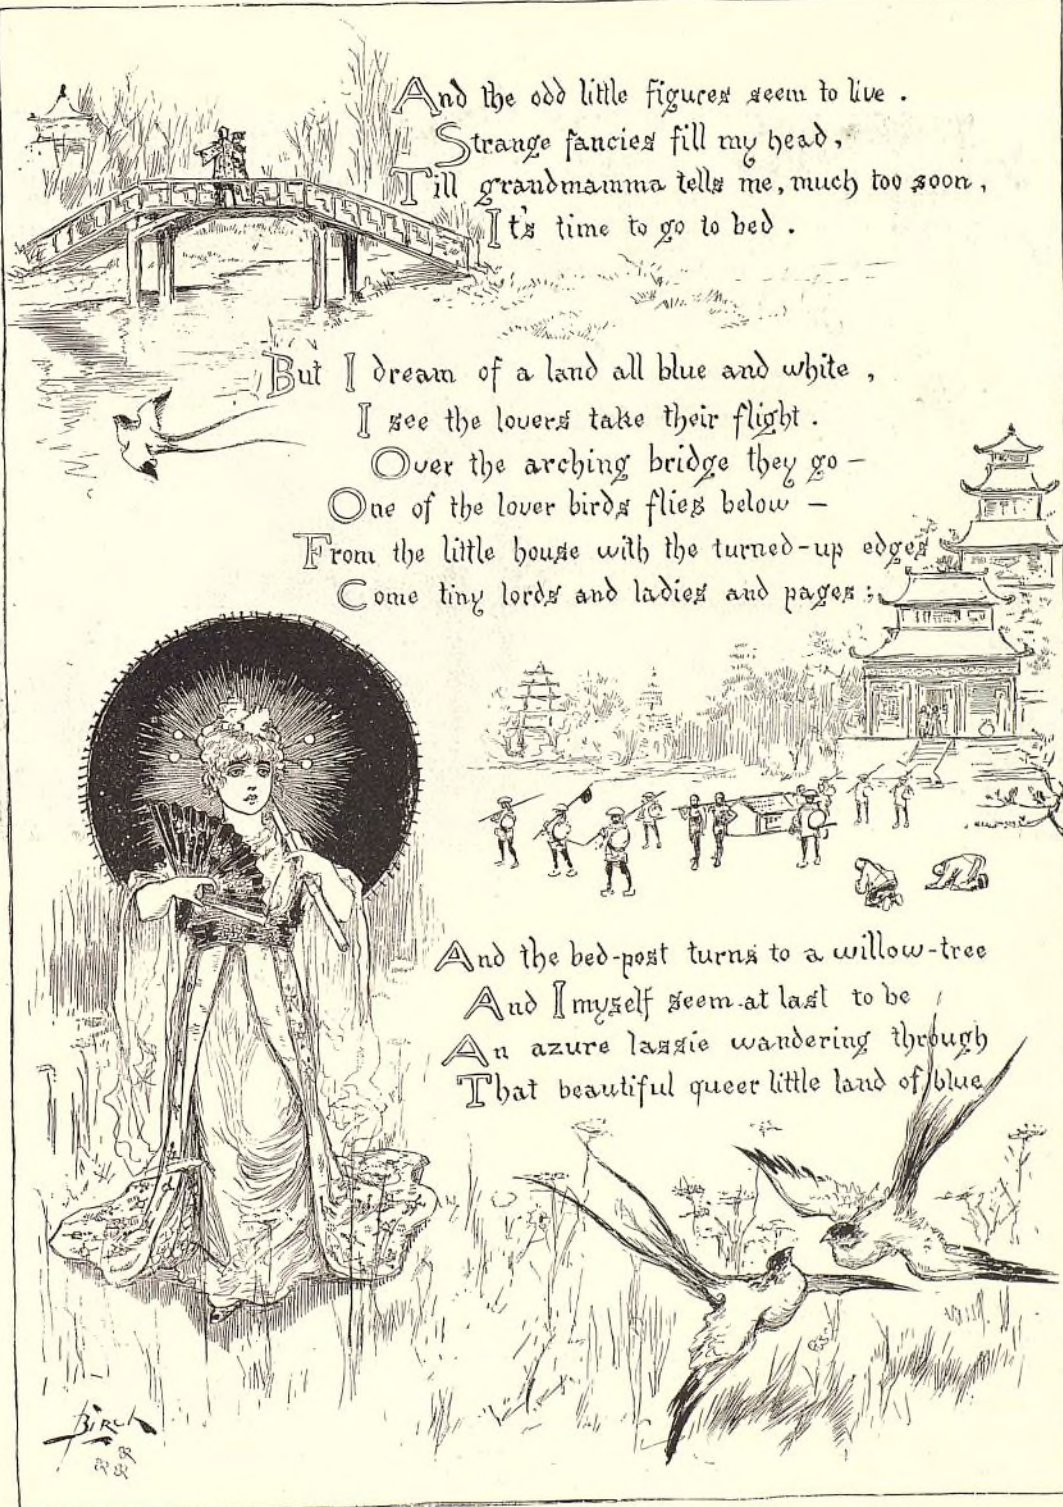 And the odd little figures seem to live.
Strange fancies fill my head,
Till grandmamma tells me, much too soon,
It's time to go to bed.
But I dream of a land all blue and white,
I see the lovers take their flight.
Over the arching bridge they go—
One of the lover birds flies below—
From the little house with the turned-up edges
Come tiny lords and ladies and pages;
And the bed-post turns to a willow-tree
And I myself seem at last to be
An azure lassie wandering through
That beautiful queer little land of blue
Birch